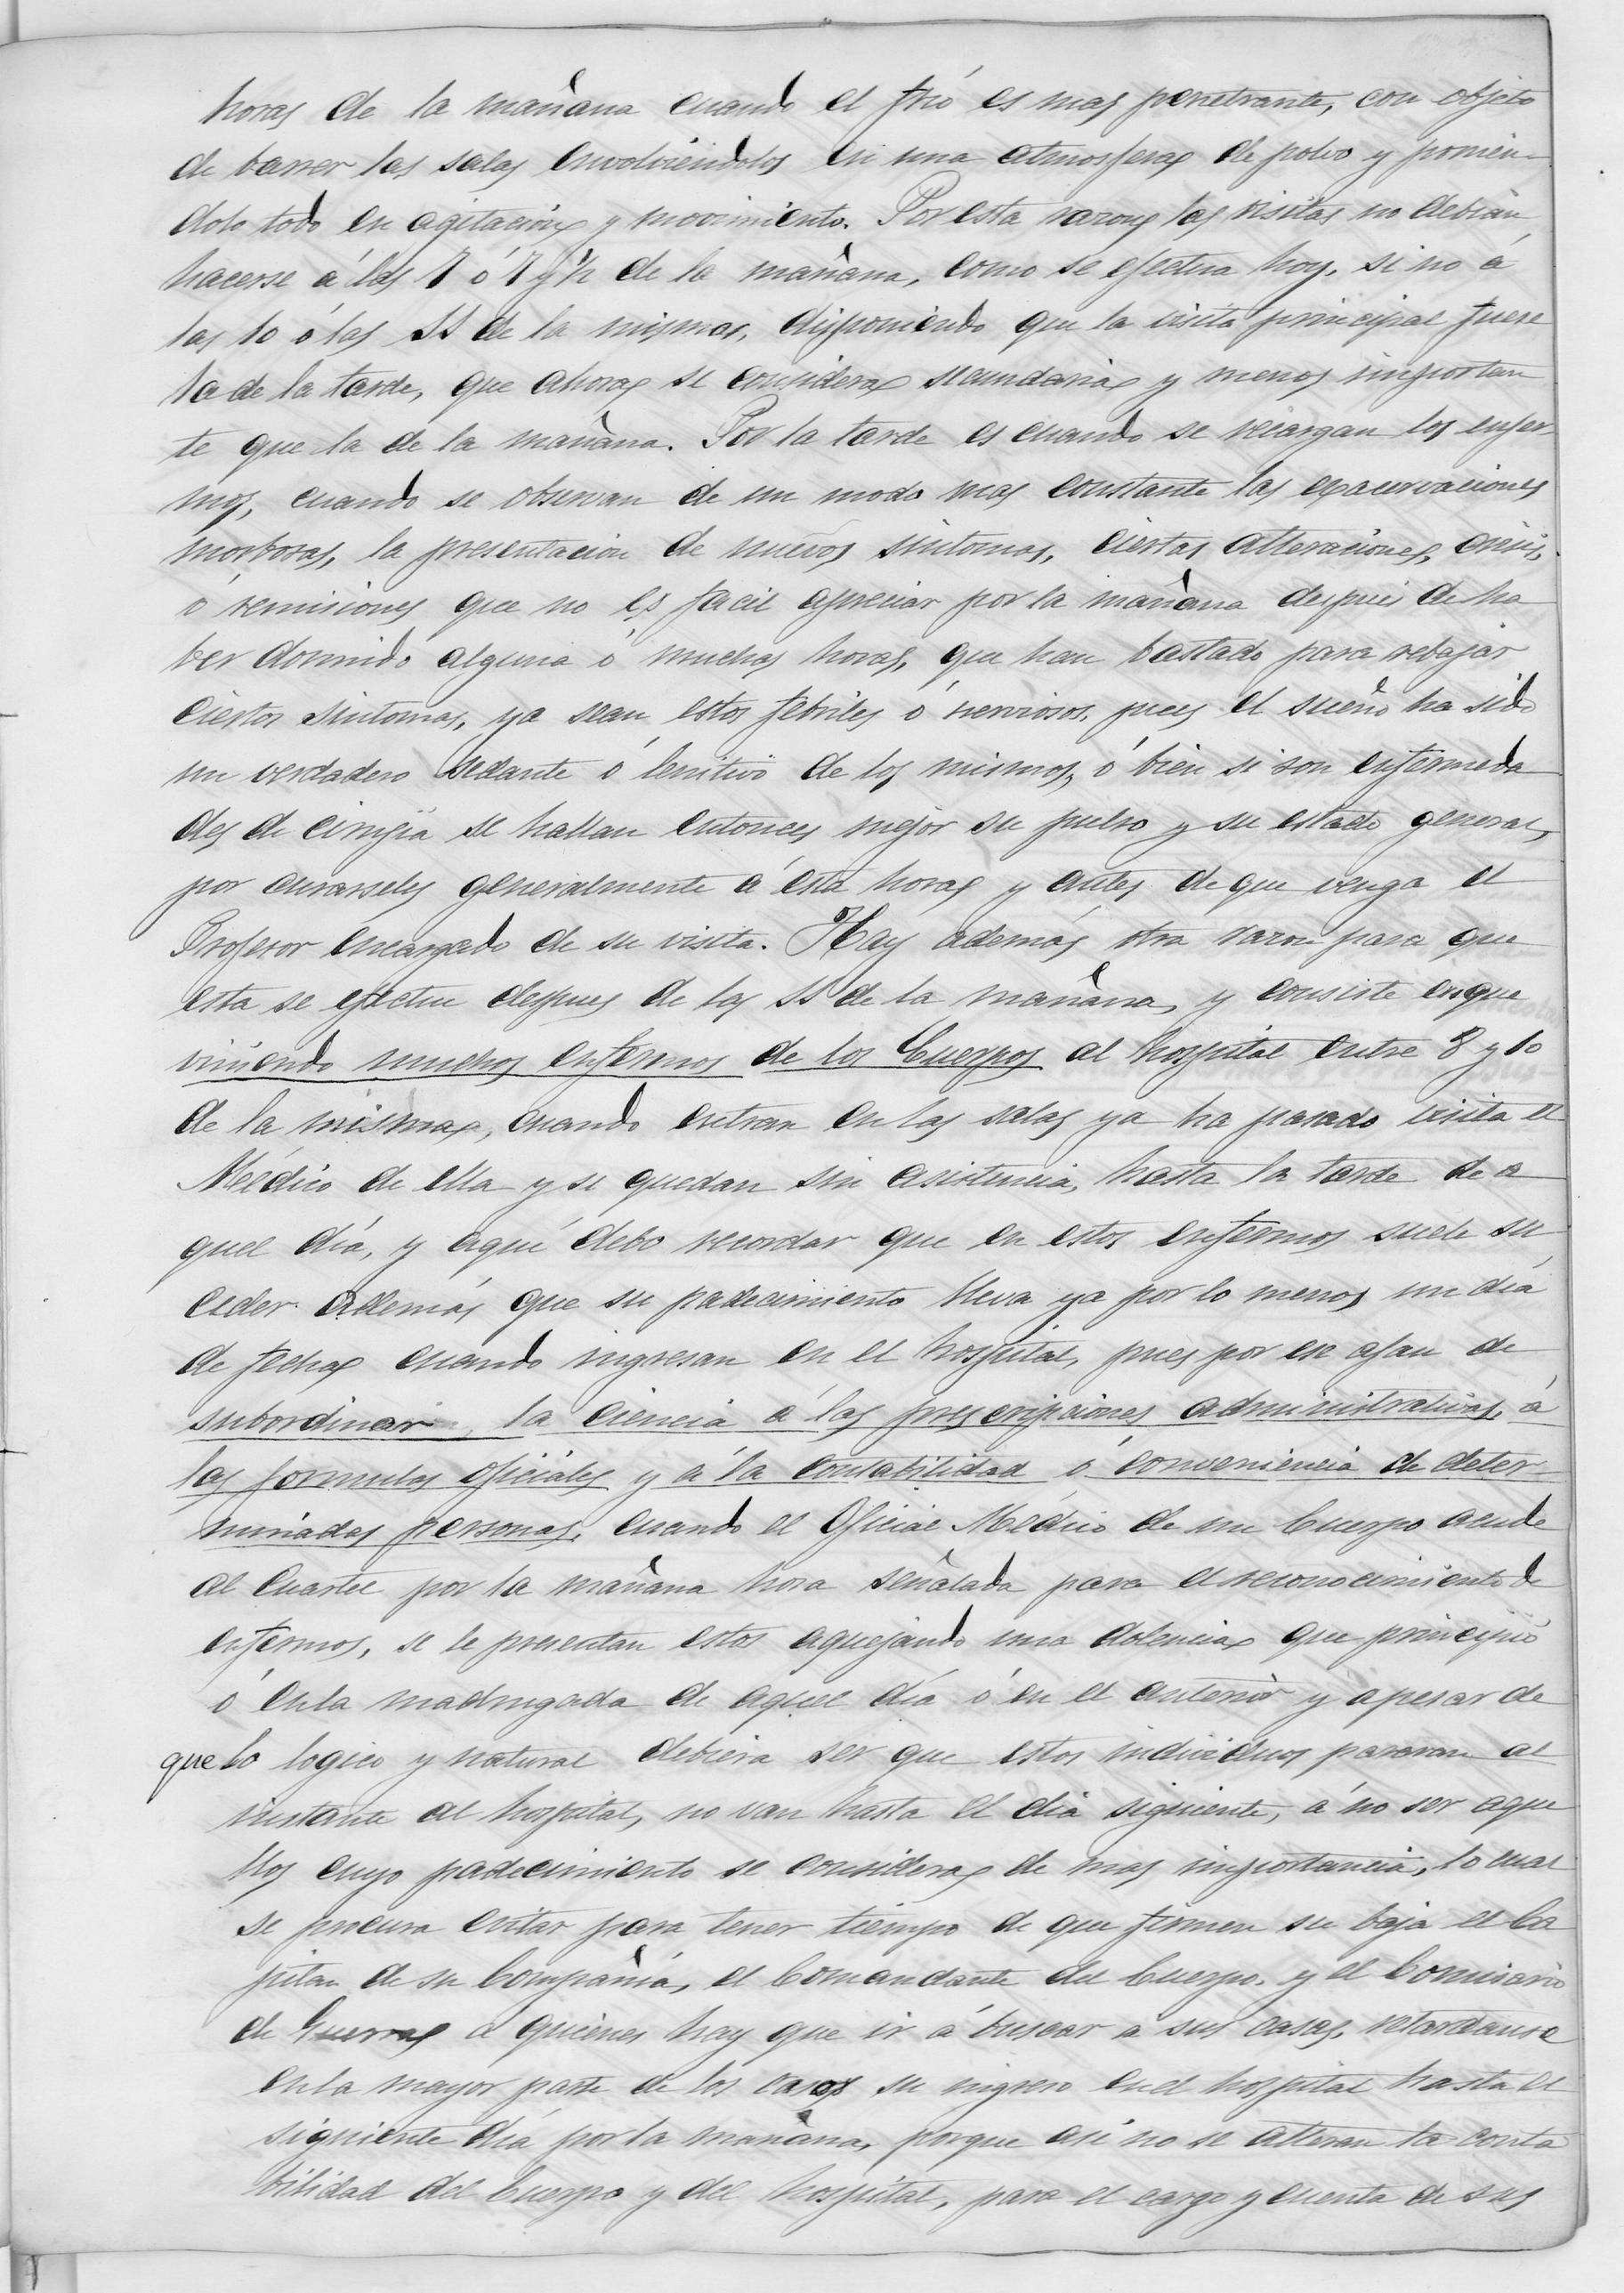 horas de la mañana cuando el frió es mas penetrante, con objeto
de barrer las salas envolviéndolos en una atmosfera de polvo y ponien-
dolo todo en agitación y movimiento. Por esta razon las visitas no debian
hacerse á las 7 ó 7 y ½ de la mañana, como se efectua hoy, si no á
las 10 ó las 11 de la misma, disponiendo que la visita principal fuese
la de la tarde, que ahora se considera secundaria y menos importan
te que la de la mañana. Por la tarde es cuando se recargan los enfer-
mos, cuando se observan de un modo mas constante las exacervaciones
morbosas, la presentacion de nuevos sintomas, ciertas alteraciones, crisis,
ó remisiones que no es facil apreciar por la mañana despues de ha
ber dormido alguna ó muchas horas, que han bastado para rebajar
ciertos sintomas, ya sean estos febriles ó nerviosos, pues el sueño ha sido
un verdadero sedante ó lenitivo de los mismos, ó bien si son enfermeda
des de cirugía se hallan entonces mejor su pulso y su estado general,
por curarseles generalmente á esta hora y antes de que venga el
Profesor encargado de su visita. Hay además otra razon para que
esta se efectue despues de las 11 de la mañana, y consiste en que
viniendo muchos enfermos de los Cuerpos al hospital entre 8 y 10
de la misma, cuando entran en las salas ya ha pasado visita el
Médico de ella y se quedan sin asistencia, hasta la tarde de a
quel día, y aquí debo recordar que en estos enfermos suele su
ceder además que su padecimiento lleva ya por lo menos un día
de fecha cuando ingresan en el hospital, pues por ese afan de
subordinar la ciencia á las prescripciones administrativas, á
las formulas oficiales y á la contabilidad ó conveniencia de deter-
minadas personas, cuando el Oficial Médico de un Cuerpo acude
al Cuartel por la mañana hora señalada para el reconocimiento de
enfermos, se le presentan estos aquejando una dolencia que principió
ó en la madrugada de aquel día ó en el anterior y apesar de
que lo logico y natural debiera ser que estos individuos pasaran al
instante al hospital, no van hasta el dia siguiente, á no ser aque
llos cuyo padecimiento se considera de mas importancia, lo cual
se procura evitar para tener tiempo de que firmen su baja el Ca
pitan de su Compañía, el Comandante del Cuerpo y el Comisario
de Guerra a quienes hay que ir á buscar a sus casas, retardanse
en la mayor parte de los casos su ingreso en el hospital hasta el
siguiente día por la mañana, porque asi no se alteran la conta
bilidad del Cuerpo y del hospital, para el cargo y cuenta de sus